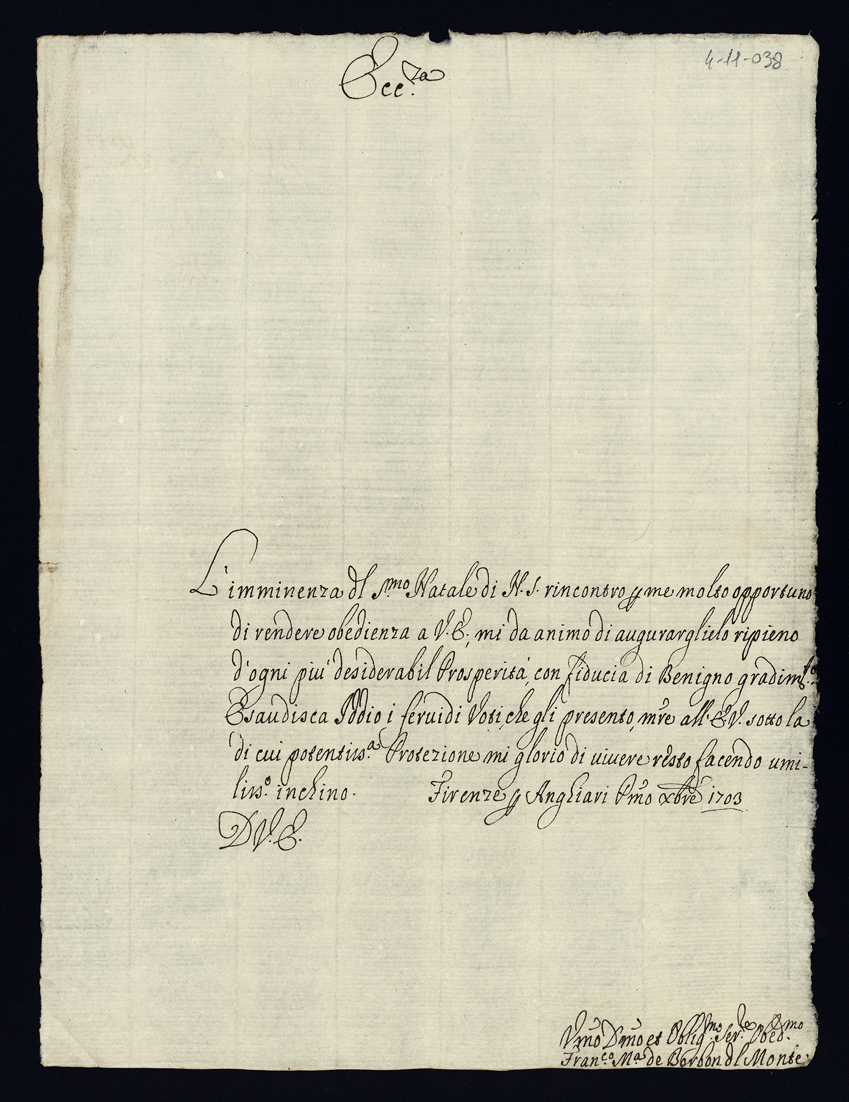 4-11-038
Ecc.za
L'imminenza dl S.mo Natale di N. S. rincontro p me molto opportuno
di rendere obedienza a V. E., mi da animo di augurarglielo ripieno
d'ogni più desiderabil Prosperità, con fiducia di Benigno gradim.to
Esaudisca Iddio i feruidi Voti, che gli presento, mre all'E. V. sotto la
di cui potentiss.a Protezione mi glorio di viuere resto facendo umi-
liss.o inchino. Firenze p Anghiari Pmo Xbre 1703
D V. E.
Vmo Dmo et Oblig.mo Ser.re Obed.mo
Fran.co M.a de Borbon dl Monte